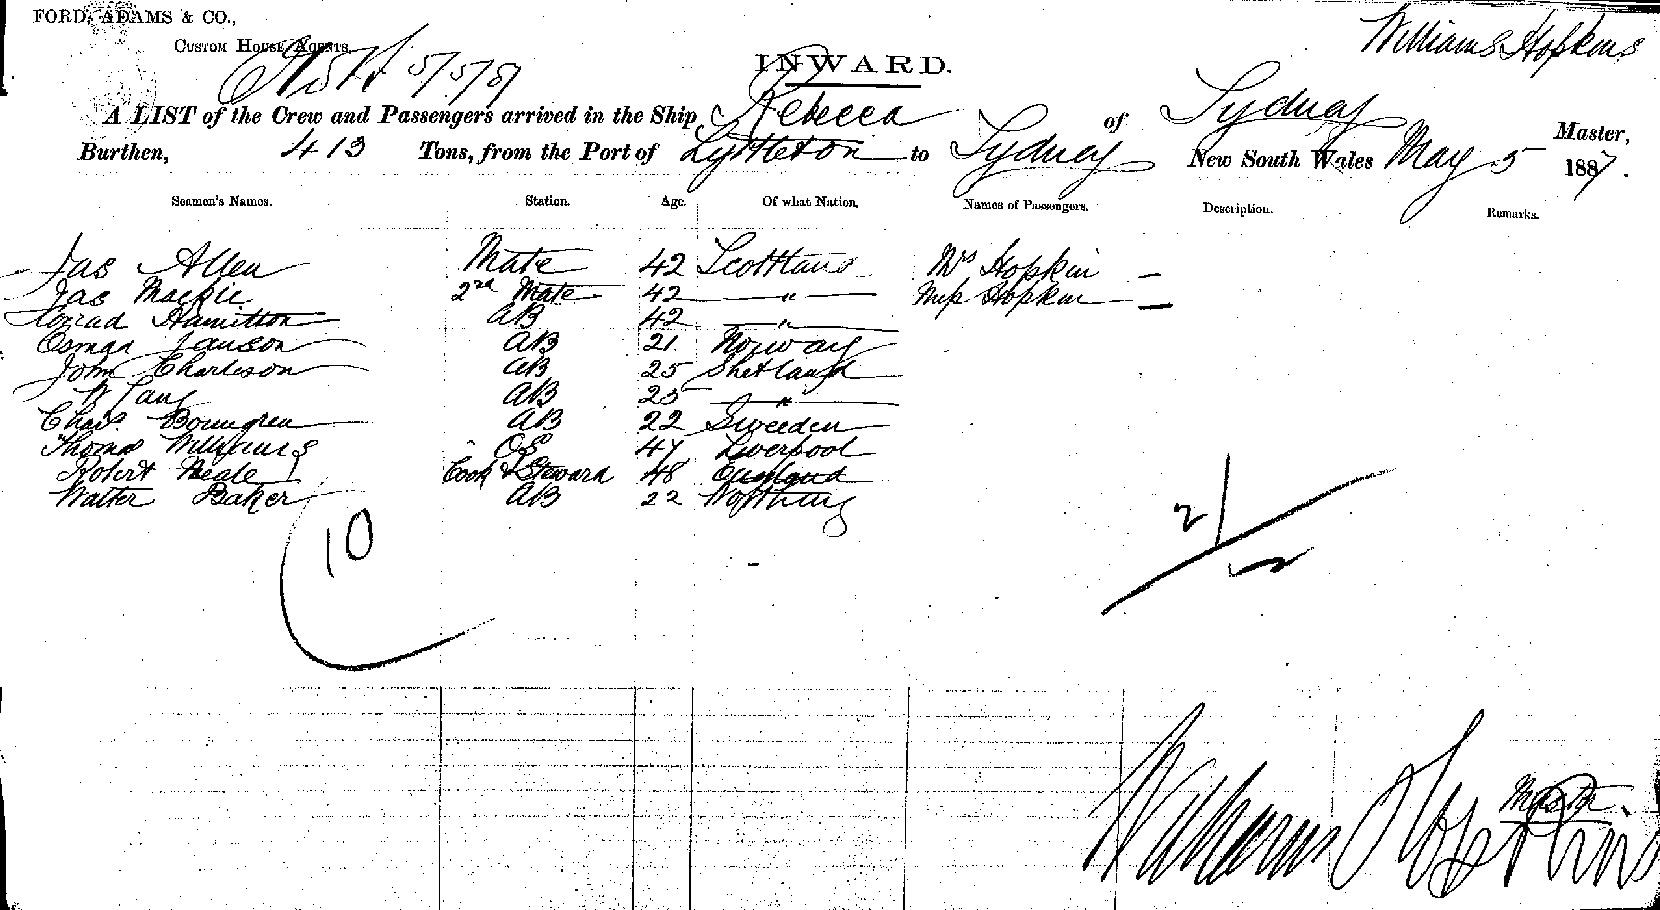 FORD, ADAMS & CO.,
CUSTOM HOUSE AGENTS.
5/5/87
INWARD.
William Hopkins
A LIST of the Crew and Passengers arrived in the Ship, Rebecca of Sydney Master,
Burthen, 413 Tons, from the Port of Lyttleton to Sydney New South Wales May 5 1887.
Seamen's Names. Station. Age. Of what Nation. Names of Passengers. Description. Remarks.
Jas Allen Mate 42 Scottland Mrs Hopkin —
Jas Mackie 2nd Mate 42 — " — Miss Hopkin —
Conrad Hamilton AB 42 — " —
Janson AB 21 Norway
John Charleson AB 25 Shetland
W AB 25 — " —
Chas. Bomngren AB 22 Sweeden
Thomas Williams OS 47 Liverpool
Robert Neale Cook & Steward 48 England
Walter Baker AB 22 Worthing
10
2/
William Hopkins
Master